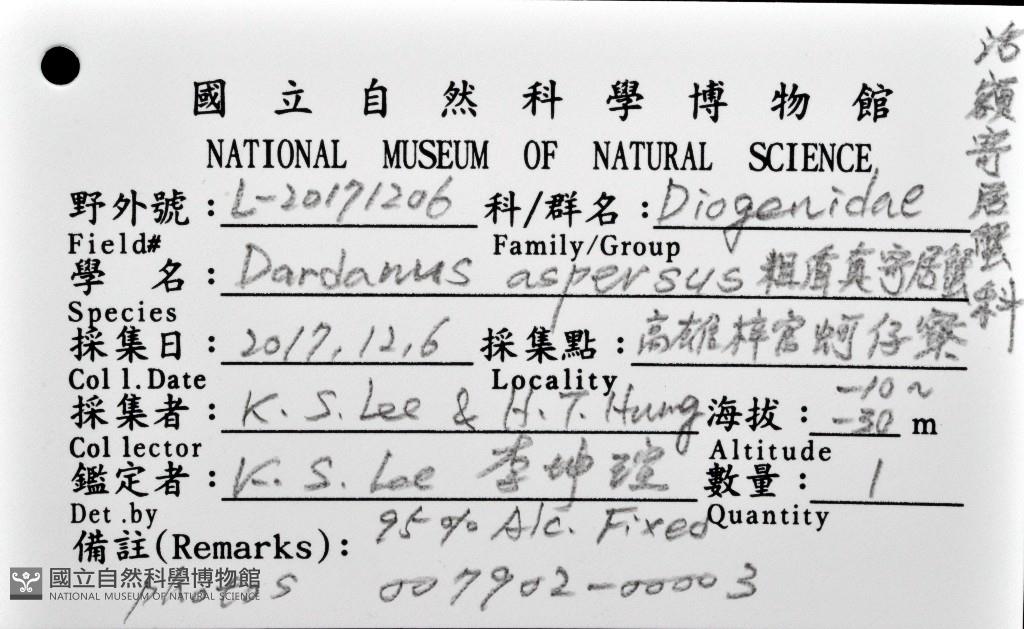 國立自然科學博物館
NATIONAL MUSEUM OF NATURAL SCIENCE
野外號：L-20171206 科/群名：Diogenidae
Field# Family/Group
學 名：Dardanus aspersus 粗盾真寄居蟹
Species
採集日：2017.12.6 採集點：高雄梓官蚵仔寮
Coll.Date Locality
採集者：K. S. Lee & H. T. Hung 海拔：-10～-30 m
Collector Altitude
鑑定者：K. S. Lee 李坤瑄 數量：1
Det.by Quantity
備註(Remarks)： 95% Alc. Fixed
photos 007902-00003
活額寄居蟹科
國立自然科學博物館
NATIONAL MUSEUM OF NATURAL SCIENCE